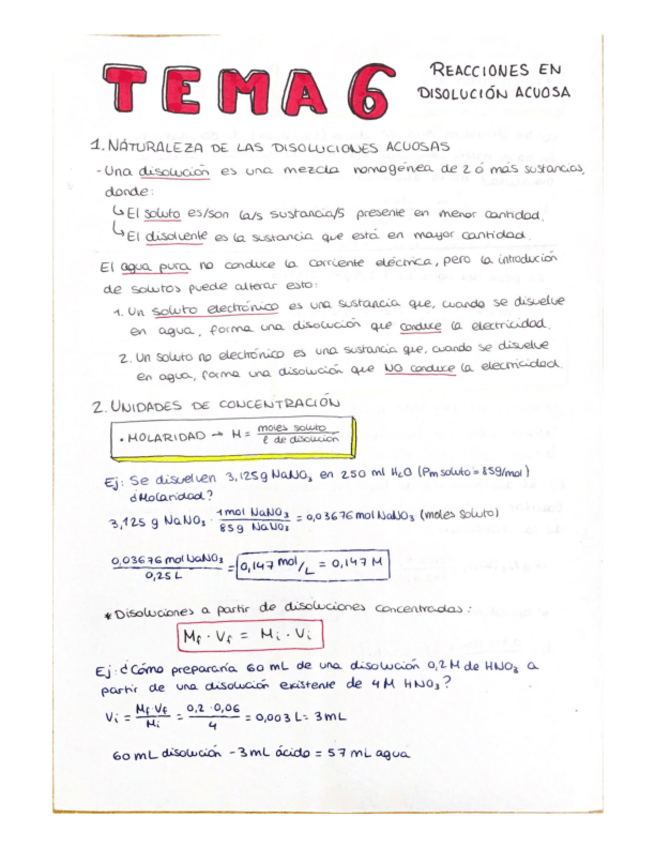 TEMA 6
REACCIONES EN
DISOLUCIÓN ACUOSA
1. NATURALEZA DE LAS DISOLUCIONES ACUOSAS
- Una disolución es una mezcla homogénea de 2 ó más sustancias,
donde:
↳ El soluto es/son la/s sustancia/s presente en menor cantidad.
↳ El disolvente es la sustancia que está en mayor cantidad.
El agua pura no conduce la corriente eléctrica, pero la introdución
de solutos puede alterar esto:
1. Un soluto electrónico es una sustancia que, cuando se disuelve
en agua, forma una disolución que conduce la electricidad.
2. Un soluto no electrónico es una sustancia que, cuando se disuelve
en agua, forma una disolución que NO conduce la electricidad.
2. UNIDADES DE CONCENTRACIÓN
• MOLARIDAD → M = moles soluto / l de disolución
Ej: Se disuelven 3,125g NaNO₃ en 250 ml H₂O (Pm soluto = 85g/mol)
¿Molaridad?
3,125 g NaNO₃ · 1mol NaNO₃ / 85g NaNO₃ = 0,03676 mol NaNO₃ (moles soluto)
0,03676 mol NaNO₃ / 0,25 L = 0,147 mol/L = 0,147 M
* Disoluciones a partir de disoluciones concentradas:
Mf · Vf = Mi · Vi
Ej: ¿Cómo prepararía 60 mL de una disolución 0,2 M de HNO₃ a
partir de una disolución existente de 4M HNO₃?
Vi = Mf·Vf / Mi = 0,2 · 0,06 / 4 = 0,003 L = 3 mL
60 mL disolución - 3 mL ácido = 57 mL agua